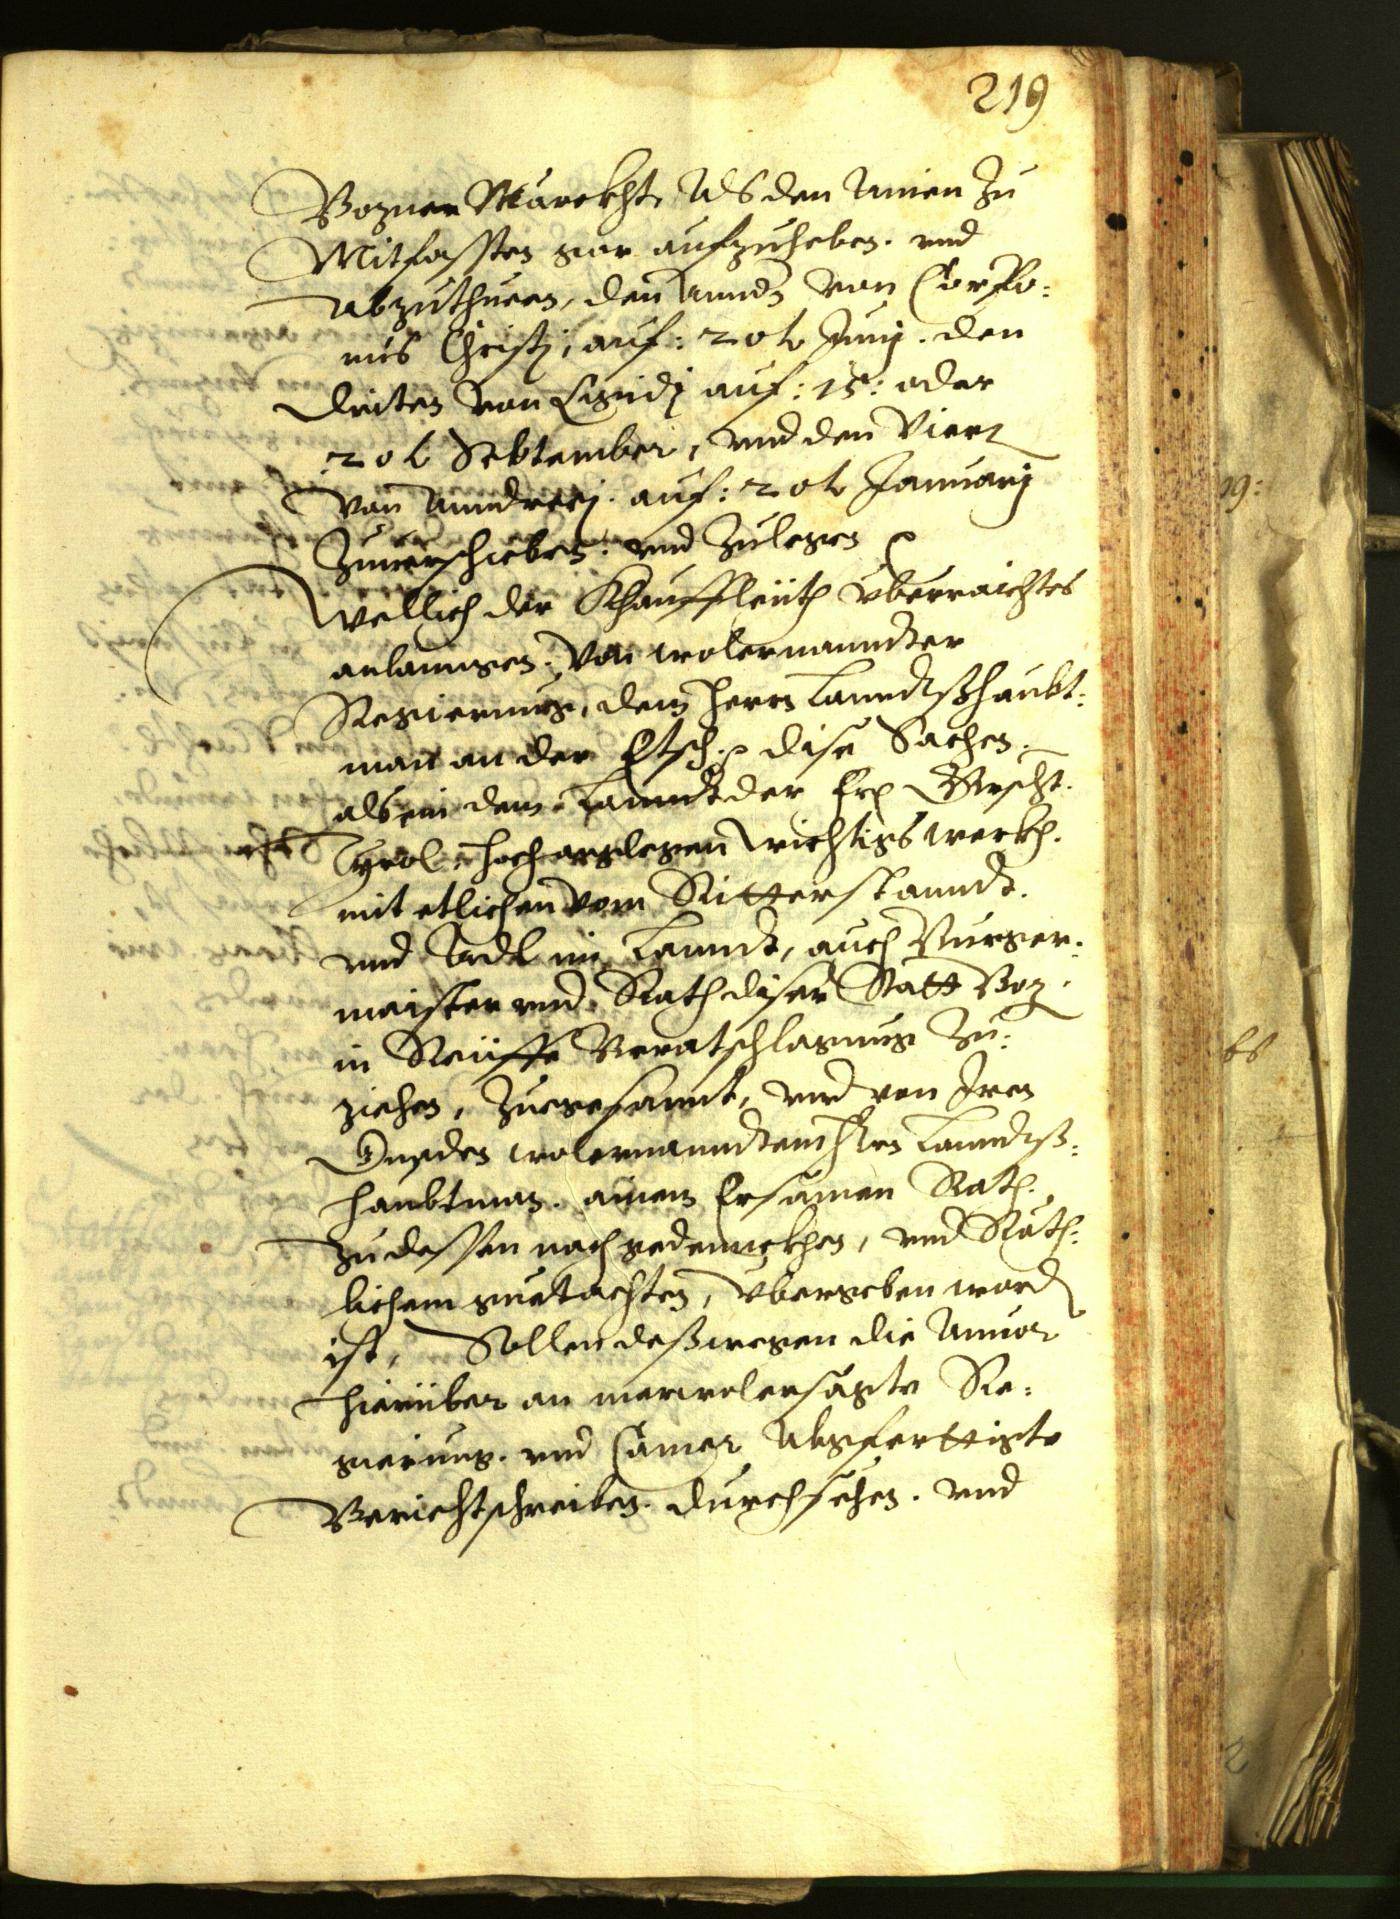 219
Bozner Märckht, Als den Ainen zu
Mitfassten gar aufzuheben. vnd
Abzuthuen, den Anndn von Corpo:
ris Christj, auf: 20t Junj. den
driten von Egidj auf: 15: oder
20t Sebtember, vnd den Viert
von Anndreej. auf: 20t Januarj
Zuuerschieben. vnd Zulegen
Wellich der Khauffleüth vberraichtes
anlanngen. von wolernanndter
Regierung, dem herrn Lanndtßhaubt:
man an der Etsch. dise Sachen.
als ein dem Lanndt der
Tyrol hoch angelegen wichtigs werkh.
mit etlichen vom Ritterstanndt.
vnd Adl im Lanndt, auch Burger:
maister vnd Rath diser Statt Boz:
in Reiffe Beratschlagung Zu:
ziehen, Zuegesannt, vnd von Iren
Gnaden wolernanndtem Lanndtß:
haubtman. ainem Ersamen Rath.
Zu dessen nachgedennckhen, vnd Räth:
lichem guetachten, Vbergeben word
ist, Sollen deßwegen die
hierüber an merwolersagte Re:
gierung. vnd Camer Abgeferttigte
Berichtschreiben. durchsehen. vnd
19:
bs